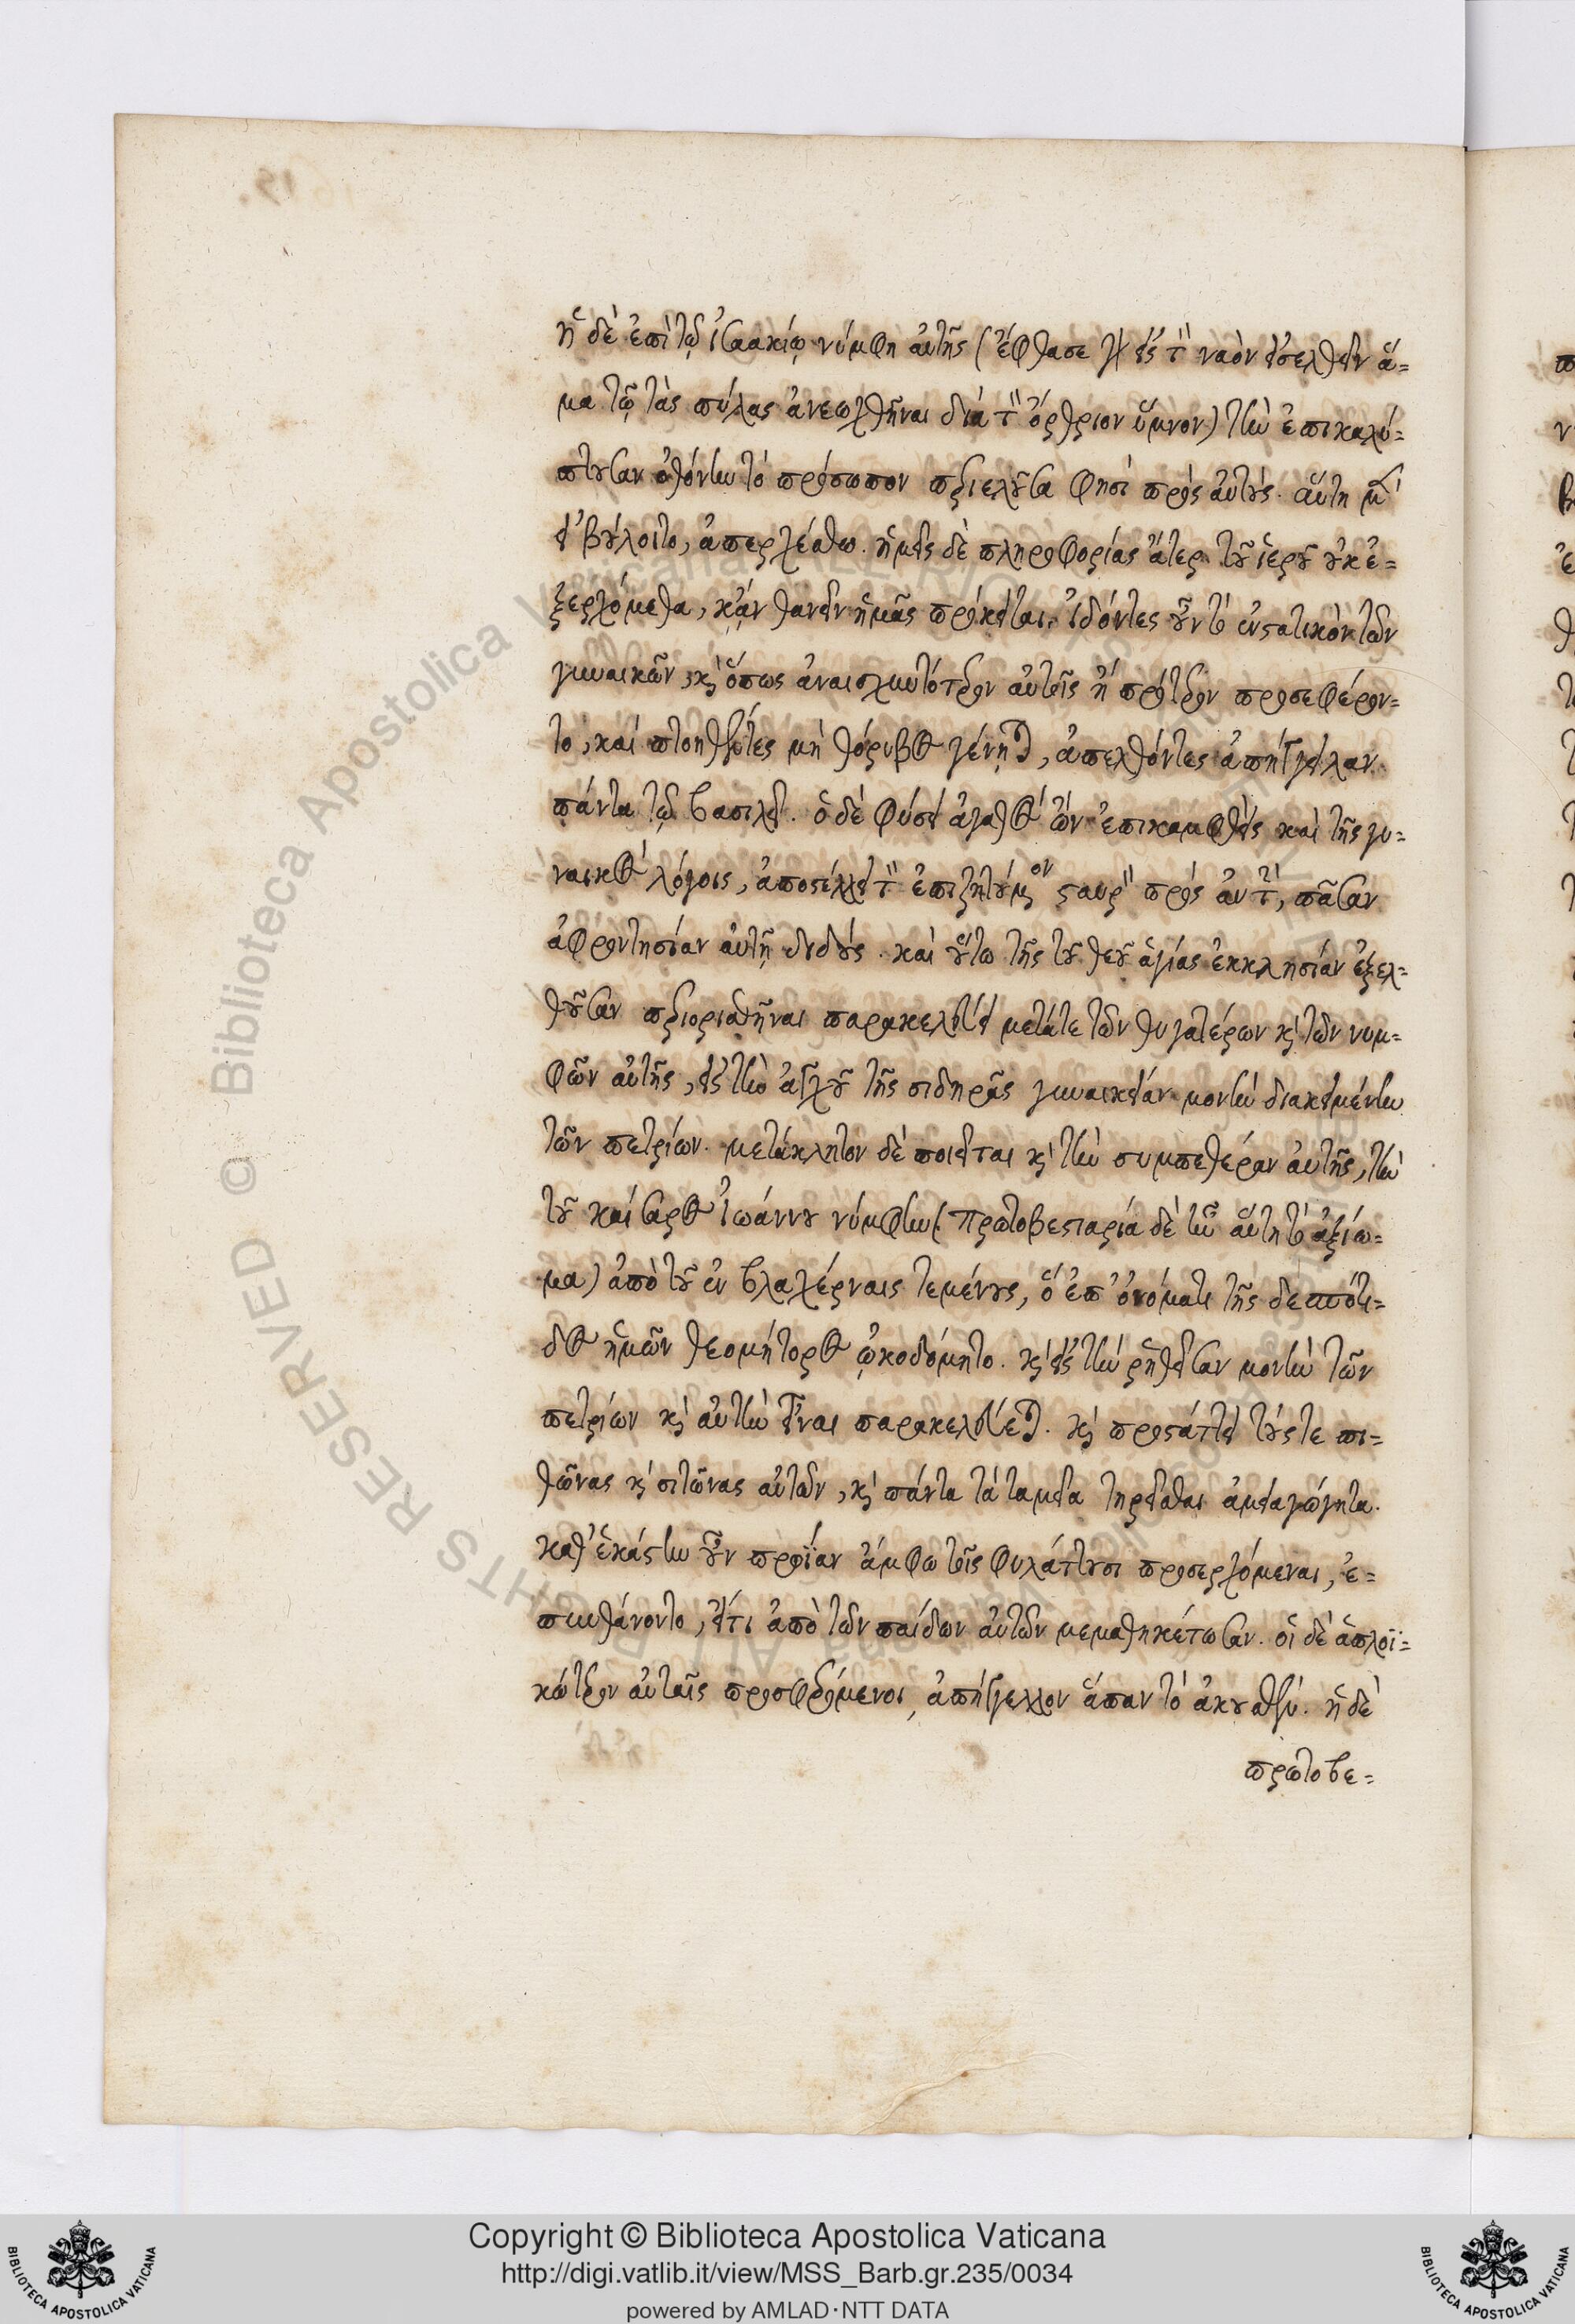 ἡ δὲ ἐπὶ τῷ ἰσαακίῳ νύμφη αὐτῆς (ἔφθασε γὰρ εἰς τὸν ναὸν εἰσελθεῖν ἅ=
μα τῷ τὰς πύλας ἀνεωχθῆναι διὰ τὸν ὄρθριον ὕμνον) τὴν ἐπικαλύ=
πτουσαν ὀθόνην τὸ πρόσωπον περιελοῦσα φησὶ πρὸς αὐτούς. αὕτη μὲν
εἰ βούλοιτο, ἀπερχέσθω. ἡμεῖς δὲ πληροφορίας ἄτερ τοῦ ἱεροῦ οὐκ ἐ=
ξερχόμεθα, κᾄν θανεῖν ἡμᾶς πρόκειται. ἰδόντες οὖν τὸ ἐνστατικὸν τῶν
γυναικῶν, καὶ ὅπως ἀναισχυντότερον αὐτοῖς ἢ πρότερον προσεφέρον=
το, καὶ πτοηθέντες μὴ θόρυβος γένηται, ἀπελθόντες ἀπήγγειλαν
πάντα τῷ βασιλεῖ. ὁ δὲ φύσει ἀγαθὸς ὢν ἐπικαμφθεὶς καὶ τῆς γυ=
ναικὸς λόγοις, ἀποστέλλει τὸν ἐπιζητούμενον σταυρὸν πρὸς αὐτὴν, πᾶσαν
ἀφροντησίαν αὐτῇ διδούς. καὶ οὕτω τῆς τοῦ θεοῦ ἁγίας ἐκκλησίαν ἐξελ=
θοῦσαν περιορισθῆναι παρακελεύει μετά τε τῶν θυγατέρων καὶ τῶν νυμ=
φῶν αὐτῆς, εἰς τὴν ἀγχοῦ τῆς σιδηρᾶς γυναικείαν μονὴν διακειμένην
τῶν πετρίων. μετάκλητον δὲ ποιεῖται καὶ τὴν συμπεθέραν αὐτῆς, τὴν
τοῦ καίσαρος Ἰωάννου νύμφην (πρωτοβεσταρία δὲ ἦν αὕτη τὸ ἀξίω=
μα) ἀπὸ τοῦ ἐν βλαχέρναις τεμένους, ὃ ἐπ' ὀνόματι τῆς δεσπότι=
δος ἡμῶν θεομήτορος ᾠκοδόμητο. καὶ εἰς τὴν ῥηθεῖσαν μονὴν τῶν
πετρίων καὶ αὐτὴν εἶναι παρακελεύεται. καὶ προστάττει τούς τε πι=
θῶνας καὶ σιτῶνας αὐτῶν, καὶ πάντα τὰ ταμεῖα τηρεῖσθαι ἀμειαγώγητα.
καθ' ἑκάστην οὖν πρωΐαν ἄμφω τοῖς φυλάττουσι προσερχόμεναι, ἐ=
πυνθάνοντο, εἴ τι ἀπὸ τῶν παίδων αὐτῶν μεμαθηκέτωσαν. οἱ δὲ ἁπλοϊ=
κώτερον αὐταῖς προσφερόμενοι, ἀπήγγελλον ἅπαν τὸ ἀκουσθέν. ἡ δὲ
πρωτοβε=
Copyright © Biblioteca Apostolica Vaticana
http://digi.vatlib.it/view/MSS_Barb.gr.235/0034
powered by AMLAD·NTT DATA